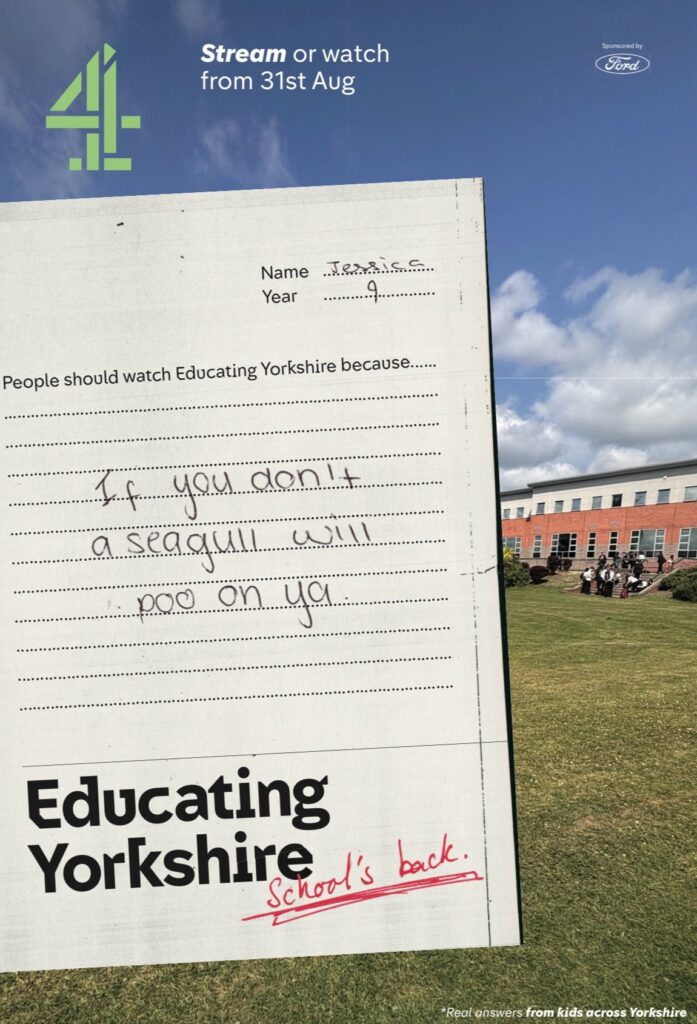 Stream or watch
from 31st Aug
Sponsored by
Ford
4
Name Jessica
Year 9
People should watch Educating Yorkshire because......
If you don't
a seagull will
poo on ya.
Educating
Yorkshire
School's back.
*Real answers from kids across Yorkshire